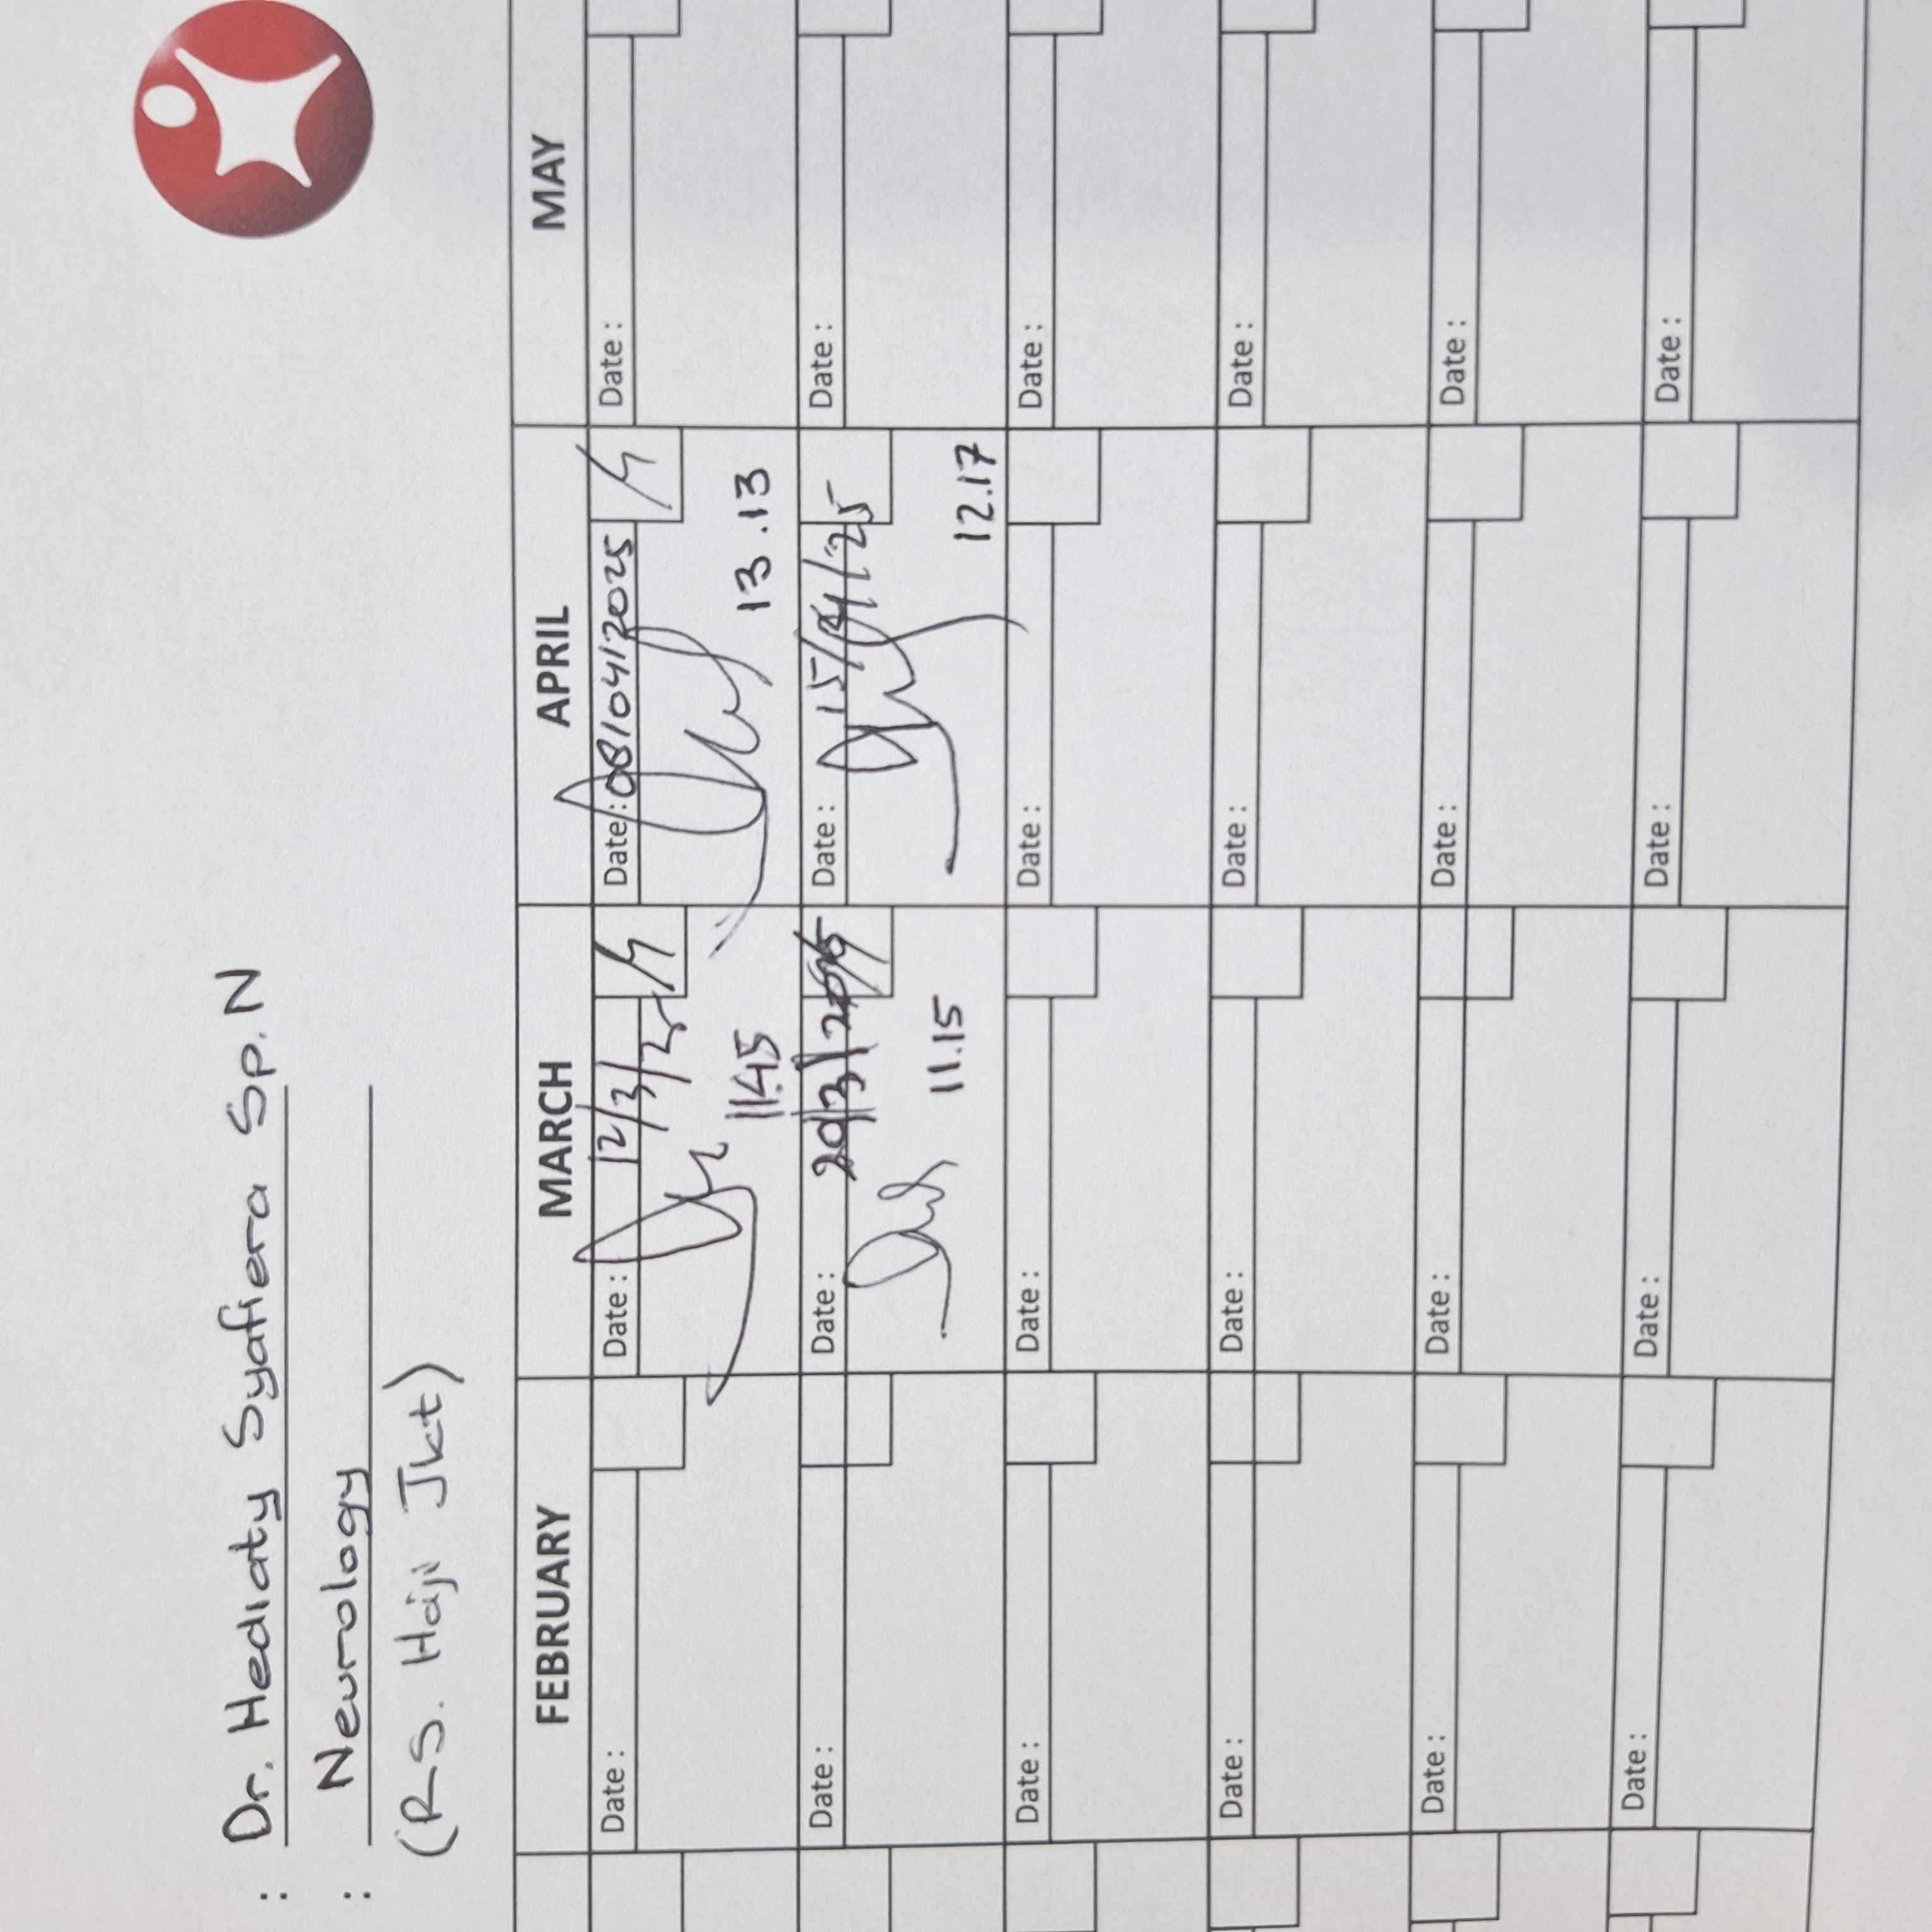 : Dr. Hediaty Syafiera Sp.N
: Neurology
(RS. Haji Jkt)
FEBRUARY MARCH APRIL MAY
Date : Date : 12/3/25 Date : 08/04/2025 Date :
11.45 13.13
Date : Date : 20/3/2025 Date : 15/04/25 Date :
11.15 12.17
Date : Date : Date : Date :
Date : Date : Date : Date :
Date : Date : Date : Date :
Date : Date : Date : Date :